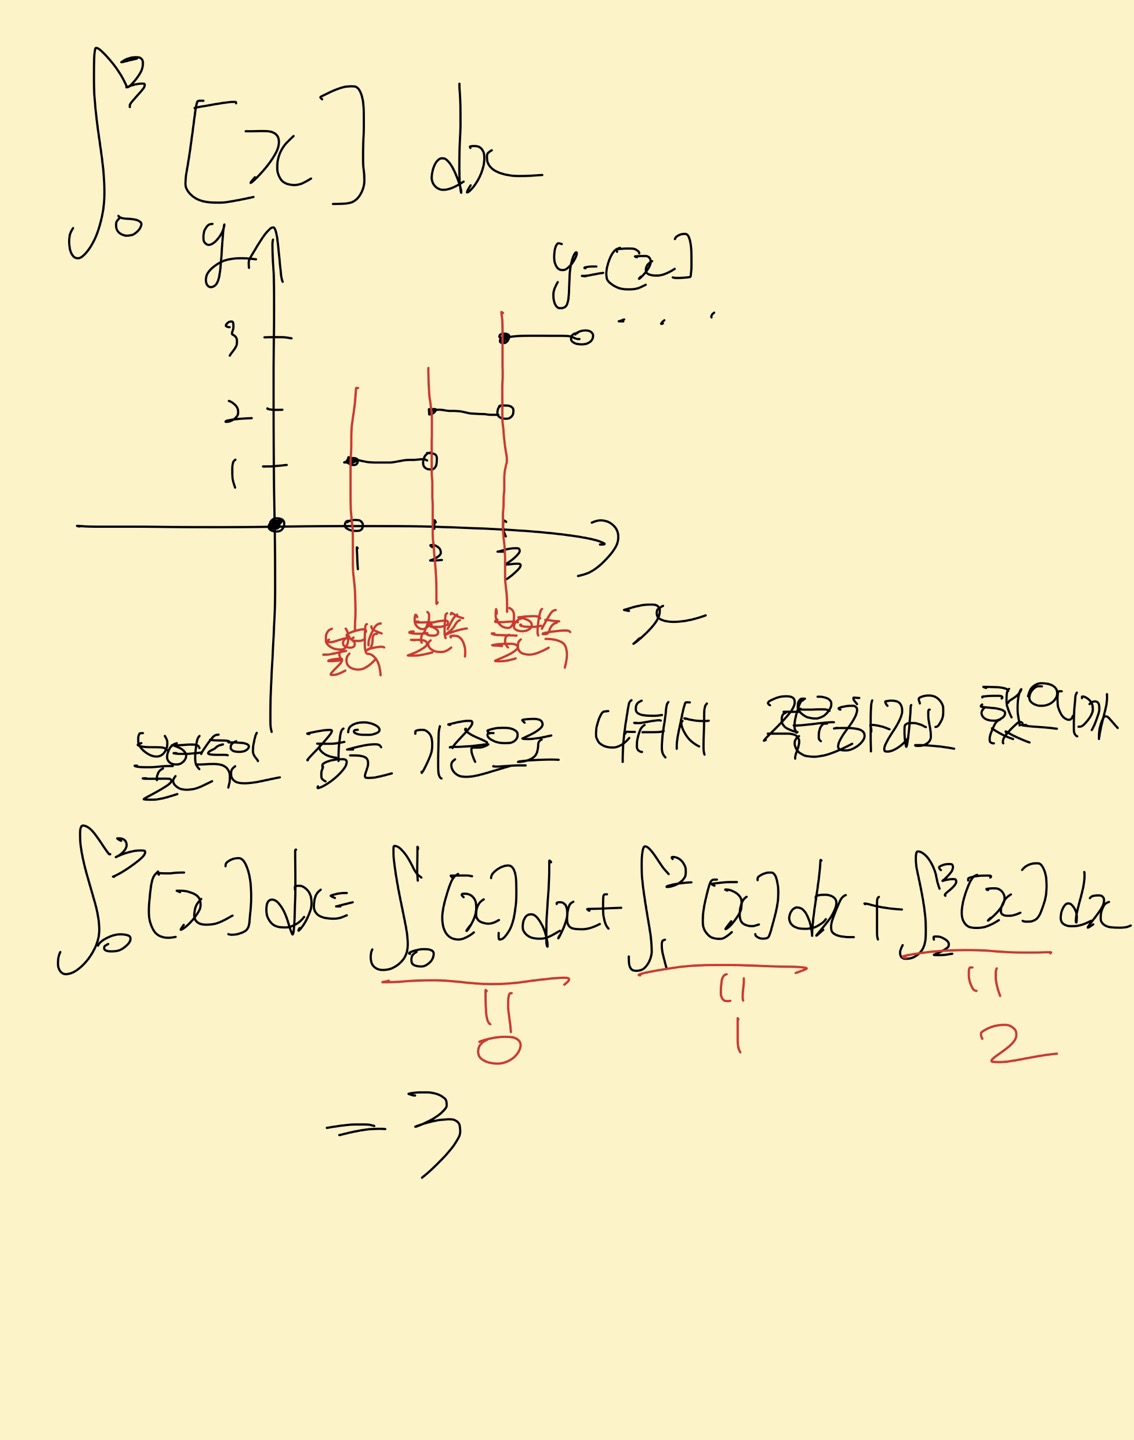 ∫₀³ [x] dx
y
y=[x]
3
2
1
1 2 3
x
불연속 불연속 불연속
불연속인 점을 기준으로 나눠서 적분하라고 했으니까
∫₀³ [x] dx = ∫₀¹ [x] dx + ∫₁² [x] dx + ∫₂³ [x] dx
= 0 = 1 = 2
= 3